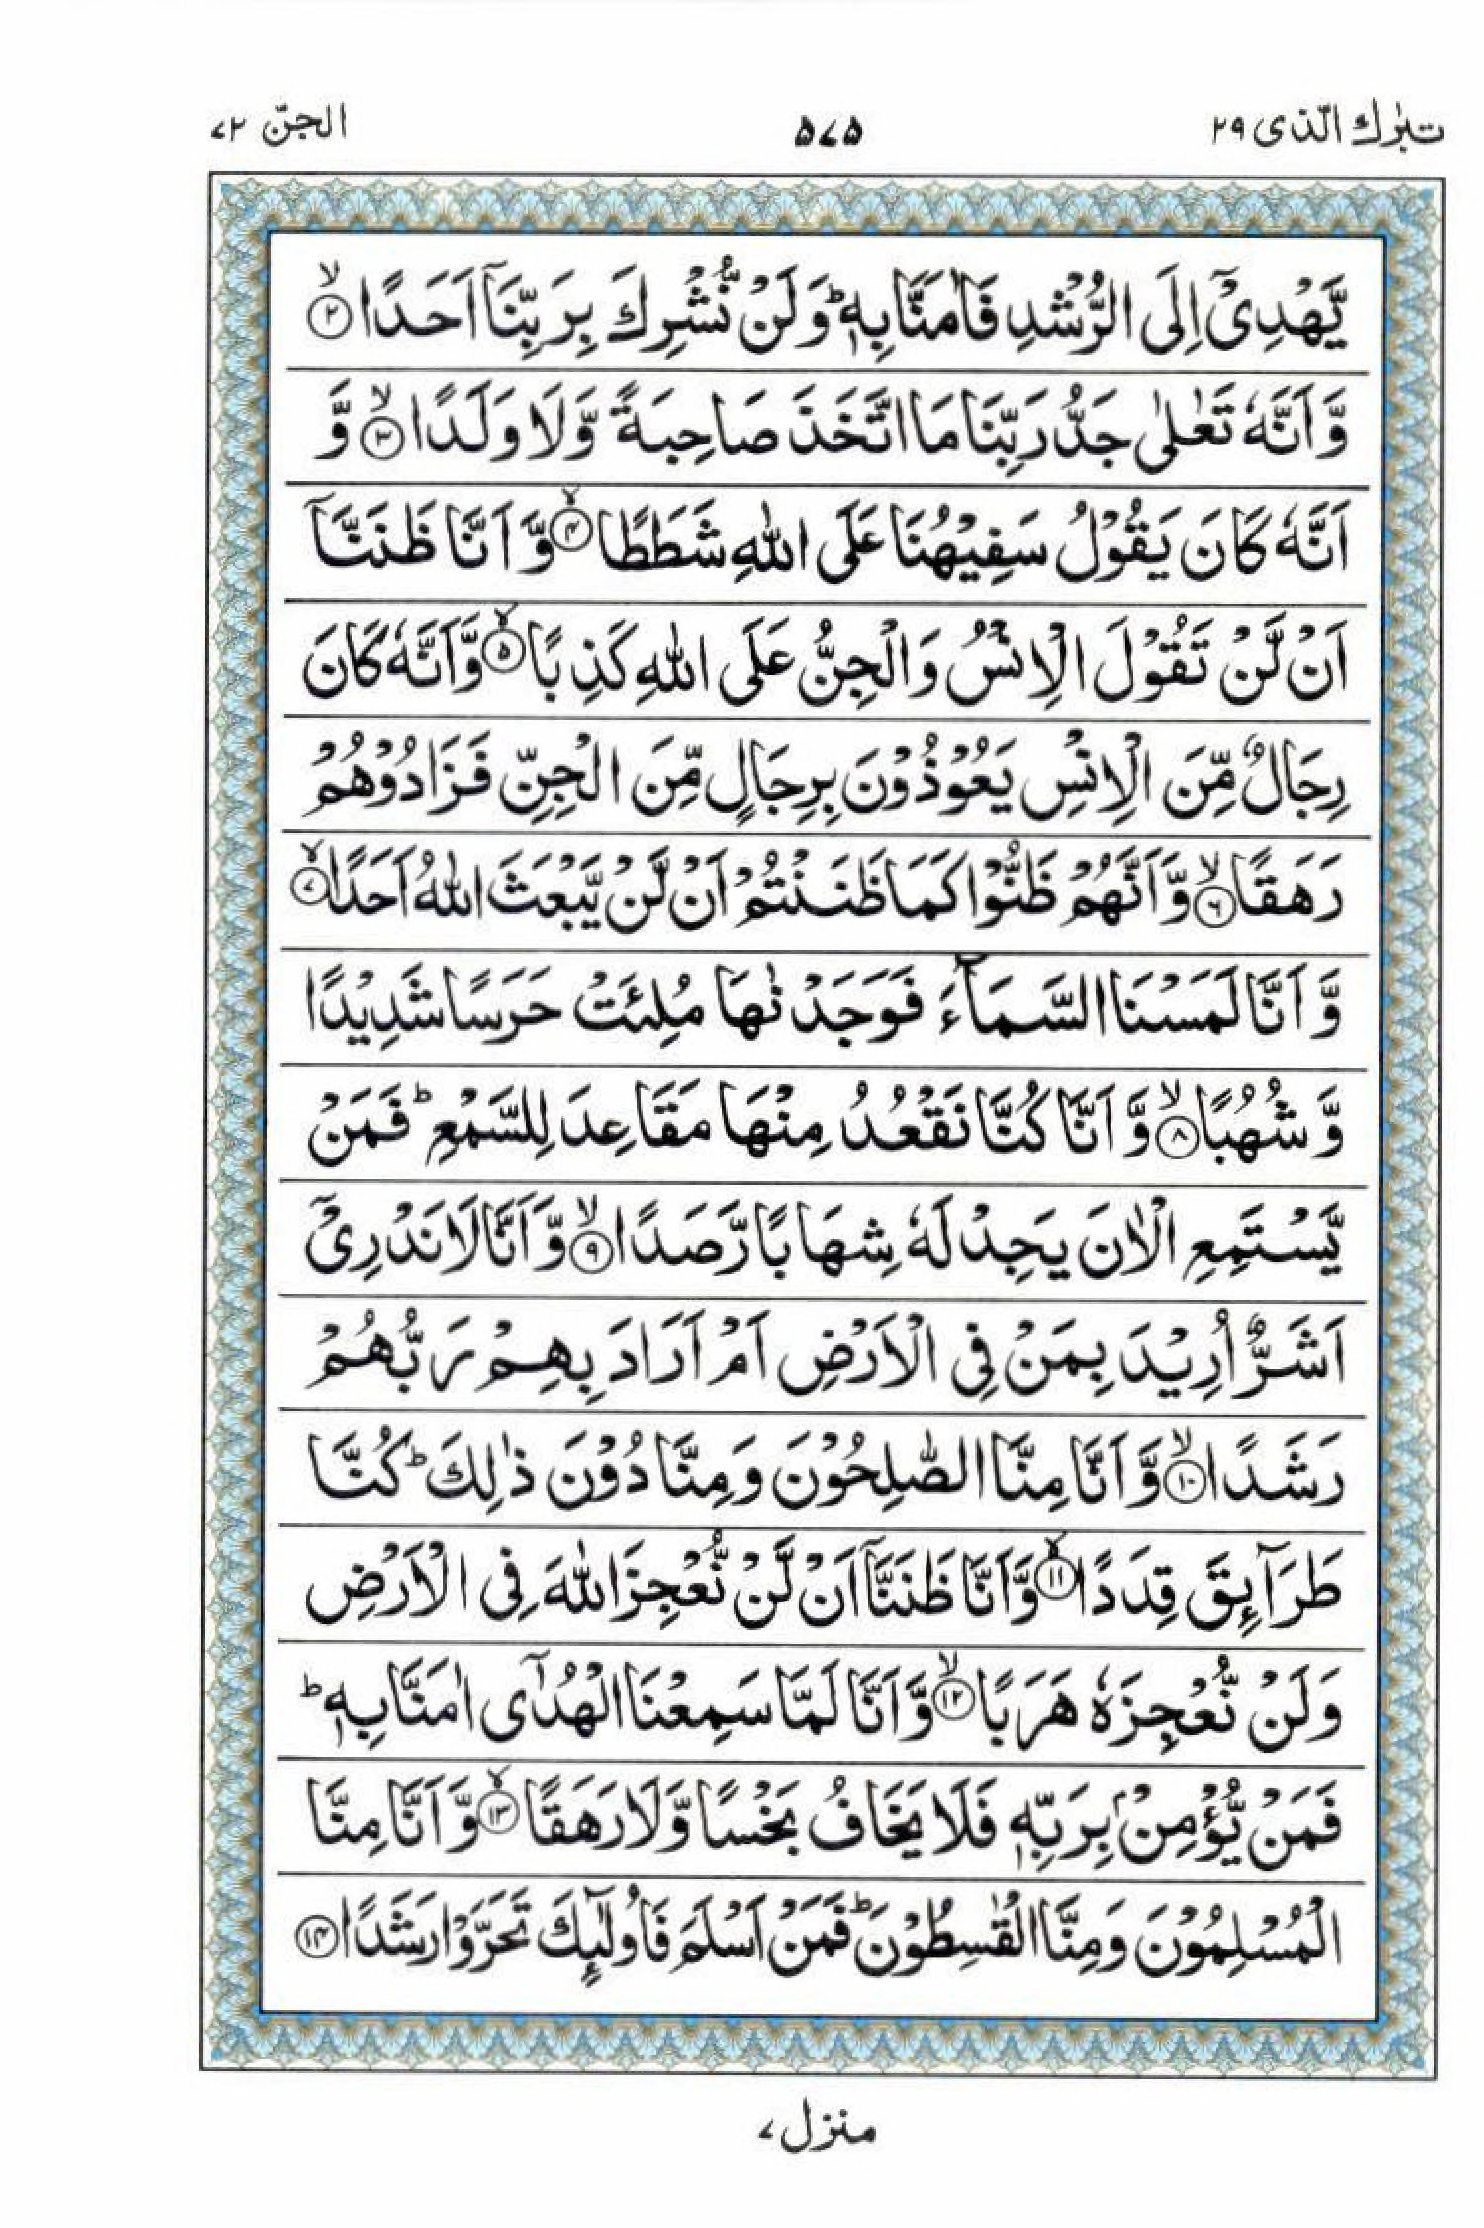 تبٰرك الّذی ۲۹ ۵۷۵ الجنّ ۷۲
يَّهْدِىْۤ اِلَى الرُّشْدِ فَاٰمَنَّا بِهٖ ؕ وَلَنْ نُّشْرِكَ بِرَبِّنَاۤ اَحَدًا ۙ‏﴿۲﴾
وَّاَنَّهٗ تَعٰلٰى جَدُّ رَبِّنَا مَا اتَّخَذَ صَاحِبَةً وَّلَا وَلَدًا ۙ‏﴿۳﴾ وَّ
اَنَّهٗ كَانَ يَقُوْلُ سَفِيْهُنَا عَلَى اللّٰهِ شَطَطًا ۙ‏﴿۴﴾ وَّاَنَّا ظَنَنَّاۤ
اَنْ لَّنْ تَقُوْلَ الْاِنْسُ وَالْجِنُّ عَلَى اللّٰهِ كَذِبًا ۙ‏﴿۵﴾ وَّاَنَّهٗ كَانَ
رِجَالٌ مِّنَ الْاِنْسِ يَعُوْذُوْنَ بِرِجَالٍ مِّنَ الْجِنِّ فَزَادُوْهُمْ
رَهَقًا ۙ‏﴿۶﴾ وَّاَنَّهُمْ ظَنُّوْا كَمَا ظَنَنْتُمْ اَنْ لَّنْ يَّبْعَثَ اللّٰهُ اَحَدًا ۙ‏﴿۷﴾
وَّاَنَّا لَمَسْنَا السَّمَآءَ فَوَجَدْنٰهَا مُلِئَتْ حَرَسًا شَدِيْدًا
وَّشُهُبًا ۙ‏﴿۸﴾ وَّاَنَّا كُنَّا نَقْعُدُ مِنْهَا مَقَاعِدَ لِلسَّمْعِ ؕ فَمَنْ
يَّسْتَمِعِ الْاٰنَ يَجِدْ لَهٗ شِهَابًا رَّصَدًا ۙ‏﴿۹﴾ وَّاَنَّا لَا نَدْرِىْۤ
اَشَرٌّ اُرِيْدَ بِمَنْ فِى الْاَرْضِ اَمْ اَرَادَ بِهِمْ رَبُّهُمْ
رَشَدًا ۙ‏﴿۱۰﴾ وَّاَنَّا مِنَّا الصّٰلِحُوْنَ وَمِنَّا دُوْنَ ذٰلِكَ ؕ كُنَّا
طَرَآئِقَ قِدَدًا ۙ‏﴿۱۱﴾ وَّاَنَّا ظَنَنَّاۤ اَنْ لَّنْ نُّعْجِزَ اللّٰهَ فِى الْاَرْضِ
وَلَنْ نُّعْجِزَهٗ هَرَبًا ۙ‏﴿۱۲﴾ وَّاَنَّا لَمَّا سَمِعْنَا الْهُدٰٓى اٰمَنَّا بِهٖ ؕ
فَمَنْ يُّؤْمِنْۢ بِرَبِّهٖ فَلَا يَخَافُ بَخْسًا وَّلَا رَهَقًا ۙ‏﴿۱۳﴾ وَّاَنَّا مِنَّا
الْمُسْلِمُوْنَ وَمِنَّا الْقٰسِطُوْنَ ؕ فَمَنْ اَسْلَمَ فَاُولٰٓئِكَ تَحَرَّوْا رَشَدًا ‏﴿۱۴﴾
منزل ۷